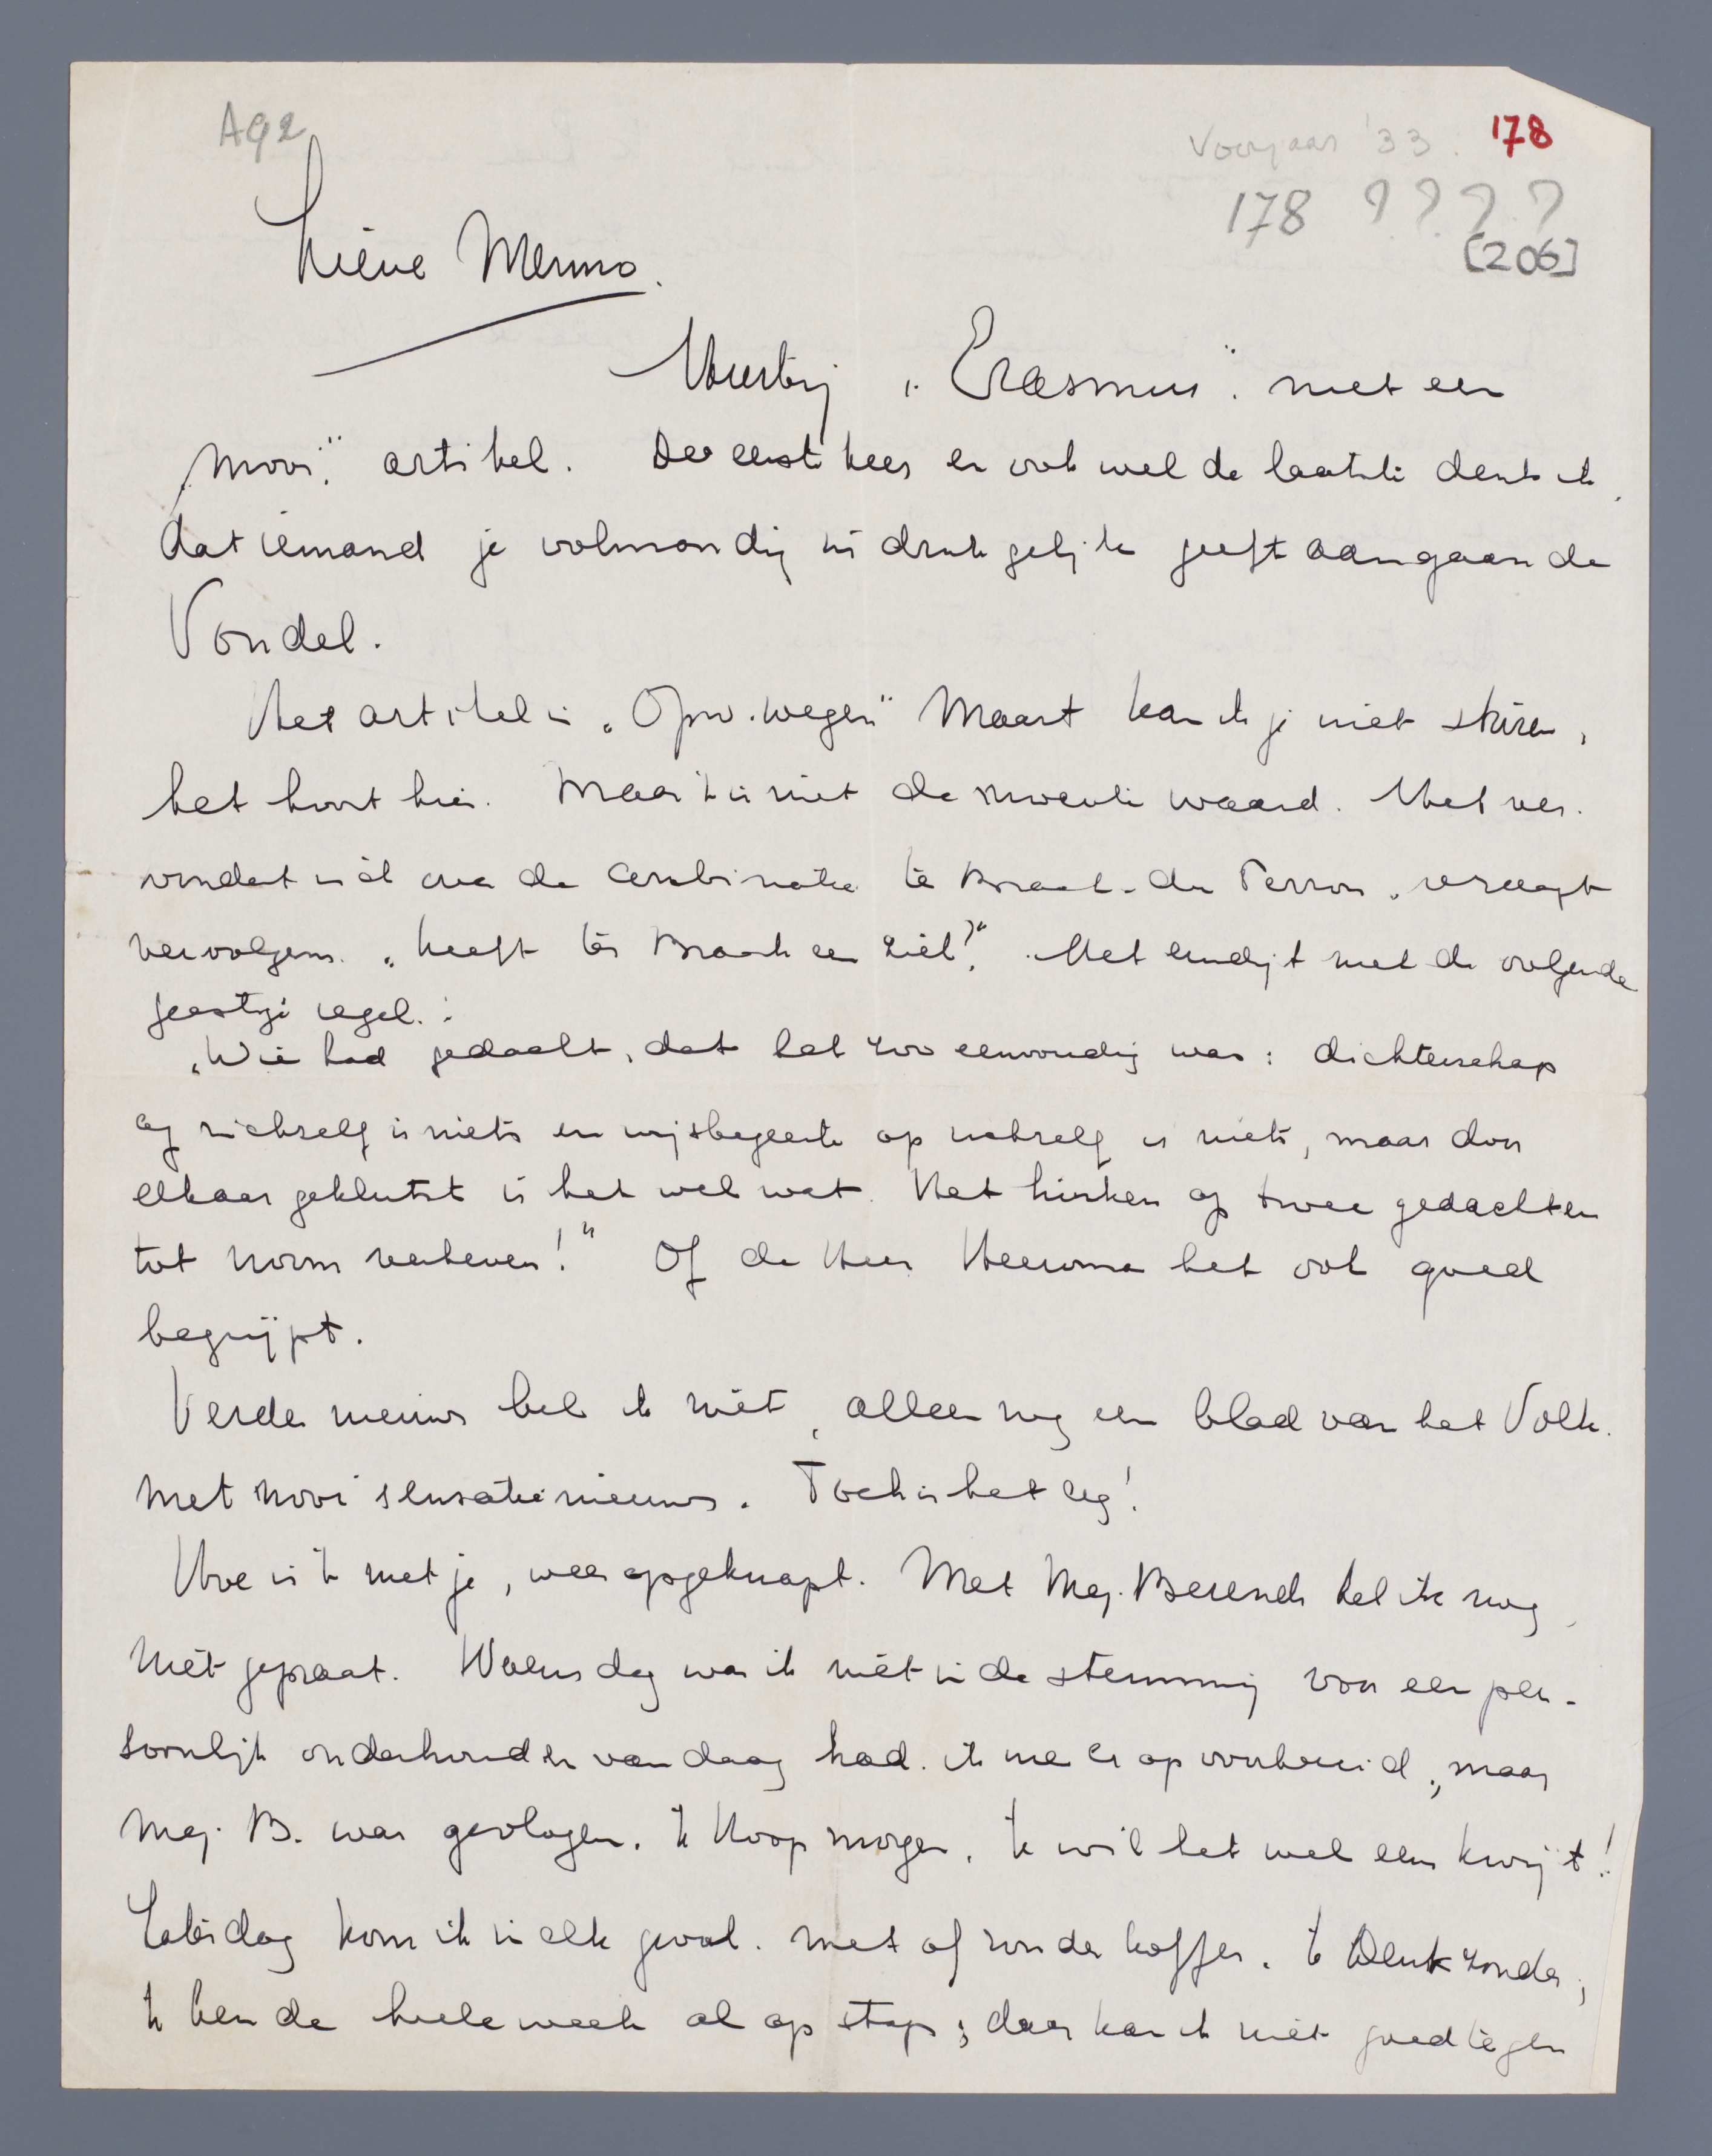 A92
Voorjaar '33. 178
178 ? ? ? ?
[206]
Lieve Menno.
Hierbij „Erasmus" met een
„mooi" artikel. De eerste keer en ook wel de laatste denk ik,
dat iemand je volmondig in druk gelijk geeft aangaande
Vondel.
Het artikel in „Opw. wegen" Maart kan ik je niet sturen,
het hoort hier. Maar 't is niet de moeite waard. Het ver-
wondert zich over de combinatie ter Braak-du Perron, vraagt
vervolgens „heeft ter Braak een ziel?" Het eindigt met de volgende
geestige regel:
„Wie had gedacht, dat het zoo eenvoudig was: dichterschap
op zichzelf is niets en wijsbegeerte op zichzelf is niets, maar door
elkaar geklutst is het wel wat. Het hinken op twee gedachten
tot norm verheven!" Of de Heer Heeroma het ook goed
begrijpt.
Verder nieuws heb ik niet, alleen nog een blad van het Volk.
met mooi sensatienieuws. Toch is het leg!
Hoe is 't met je, weer opgeknapt. Met Mej. Berends heb ik nog
niet gepraat. Woensdag was ik niet in de stemming voor een per-
soonlijk onderhoud en vandaag had ik me er op voorbereid, maar
Mej. B. was gevlogen. Ik hoop morgen. Ik wil het wel eens kwijt!
Zaterdag kom ik in elk geval. met of zonder koffer. Ik denk zonder;
Ik ben de heele week al op stap; daar kan ik niet goed tegen